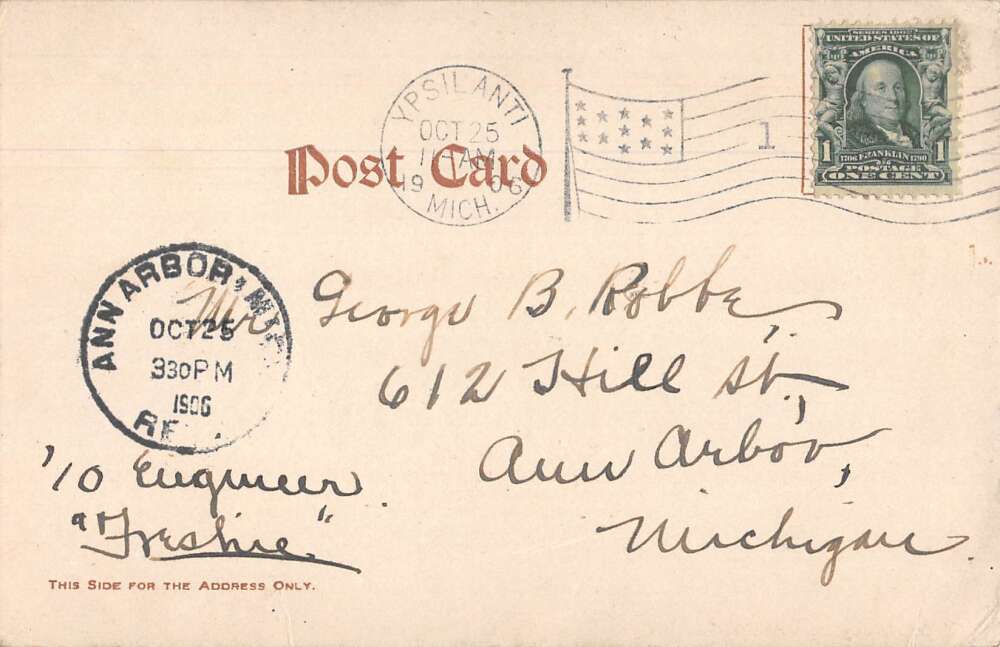 SERIES 1902
UNITED STATES OF
AMERICA
1706 FRANKLIN 1790
1 POSTAGE 1
ONE CENT
YPSILANTI
OCT 25
11 AM
1906
MICH.
1
Post Card
ANN ARBOR, MICH
OCT 25
330 PM
1906
Mr. George B. Robbe,
612 Hill St.,
Ann Arbor,
Michigan.
'10 Engineer
"Freshie."
THIS SIDE FOR THE ADDRESS ONLY.